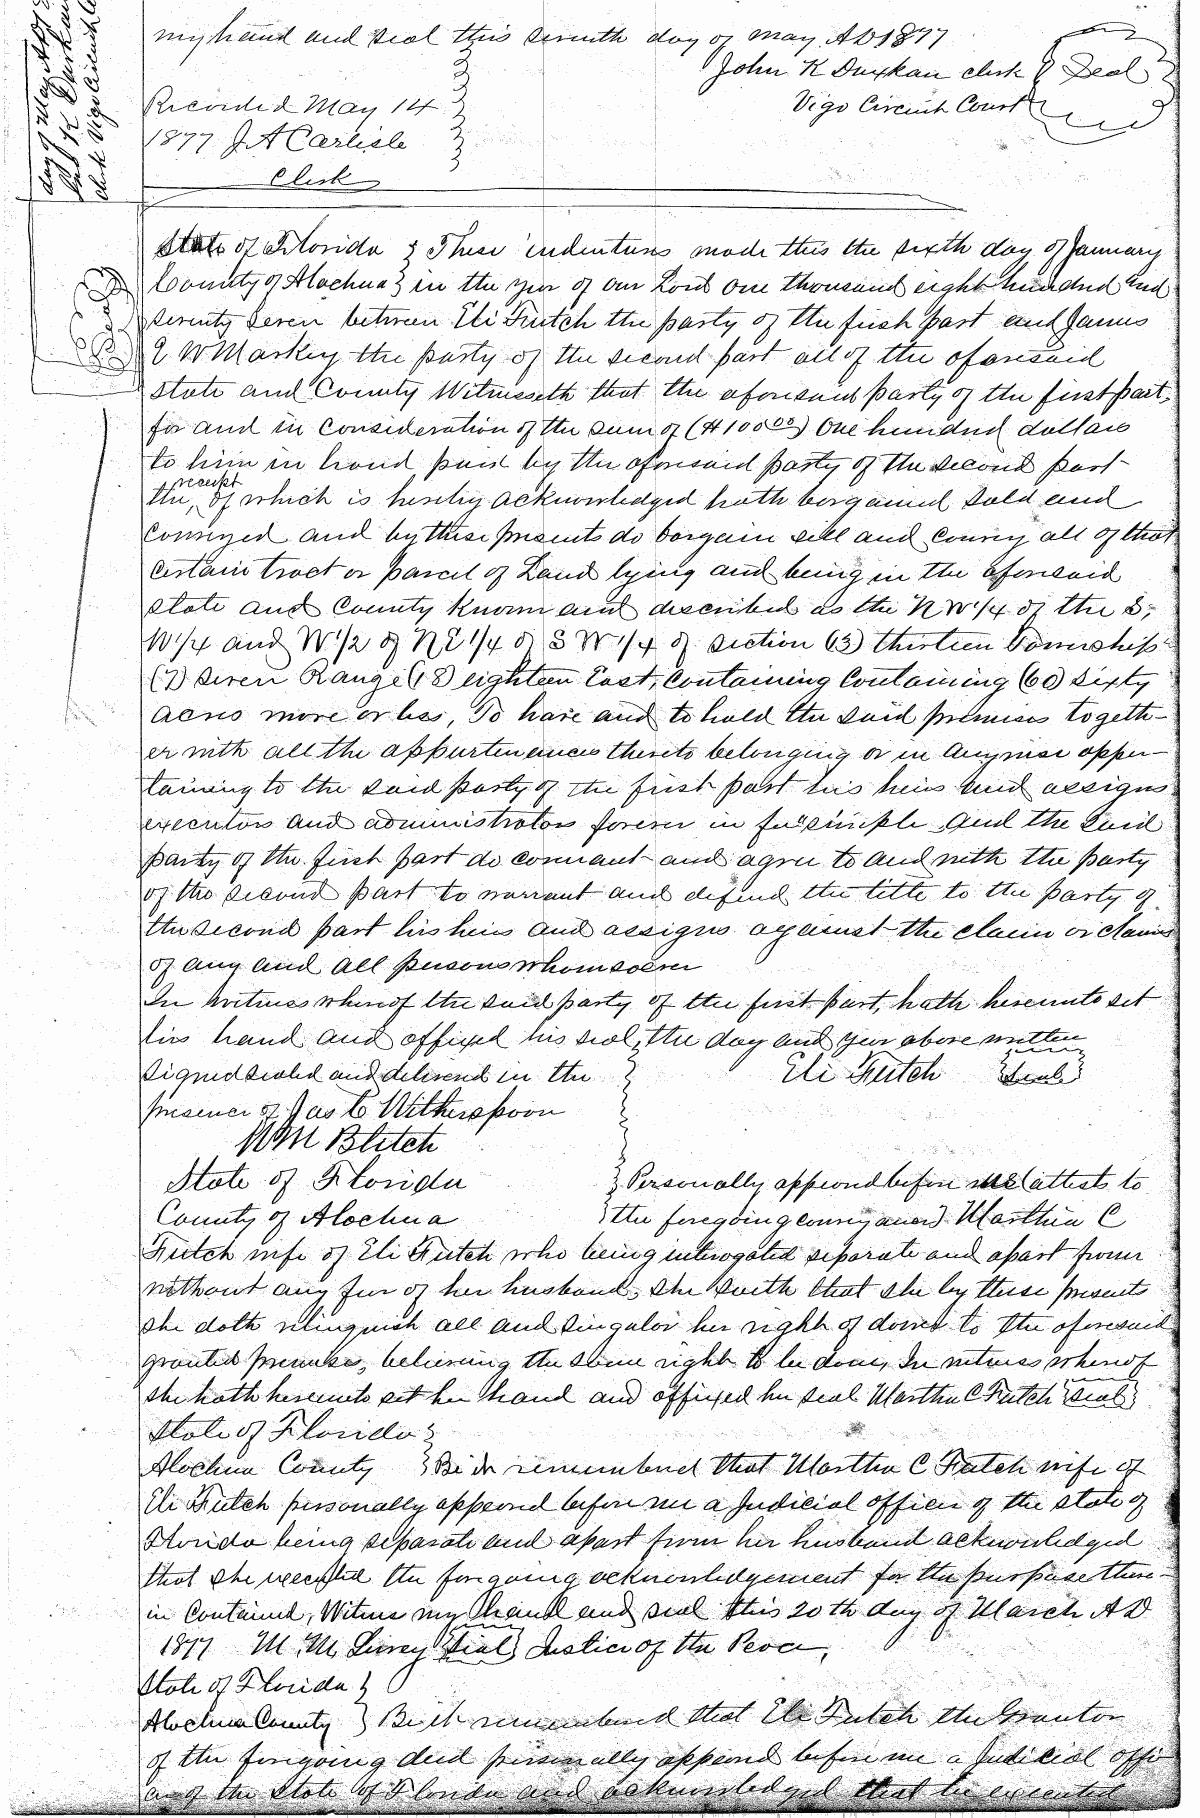 day of May AD 18
John K Durkan
clerk Vigo Circuit
my hand and seal this seventh day of May AD 1877
John K Durkan clerk Seal
Vigo Circuit Court
Recorded May 14
1877 J A Carlisle
Clerk
State of Florida } These indentures made this the sixth day of January
County of Alachua } in the year of our Lord one thousand eight hundred and
seventy seven between Eli Futch the party of the first part and James
E W Markey the party of the second part all of the aforesaid
state and County Witnesseth that the aforesaid party of the first part,
for and in consideration of the sum of ($100.00) One hundred dollars
to him in hand paid by the aforesaid party of the second part
receipt
the, of which is hereby acknowledged hath bargained Sold and
Conveyed and by these presents do bargain sell and convey all of that
certain tract or parcel of Land lying and being in the aforesaid
state and County known and described as the N W 1/4 of the S,
W 1/4 and W 1/2 of N E 1/4 of S W 1/4 of section (13) thirteen Township
(7) seven Range (18) eighteen East, containing Containing (60) Sixty
acres more or less, To have and to hold the said premises togeth-
er with all the appurtenances thereto belonging or in anywise apper-
taining to the said party of the first part his heirs and assigns
executors and administrators forever in fee simple and the said
party of the first part do covenant and agree to and with the party
of the second part to warrant and defend the title to the party of
the second part his heirs and assigns against the claim or claims
of any and all persons whomsoever
In witness whereof the said party of the first part, hath hereunto set
his hand and affixed his seal, the day and year above written
Signed sealed and delivered in the } Eli Futch {seal}
presence of Jas C Witherspoon
W M Blitch
State of Florida } Personally appeared before me (attests to
County of Alachua } the foregoing conveyance) Marthia C
Futch wife of Eli Futch who being interogated separate and apart from
without any fear of her husband, she saith that she by these presents
she doth relinquish all and singular her right of dower to the aforesaid
granted premises, believing the same right to be done, In witness whereof
she hath hereunto set her hand and affixed her seal Martha C Futch {seal}
State of Florida }
Alachua County } Be it remembered that Martha C Futch wife of
Eli Futch personally appeared before me a Judicial officer of the state of
Florida being separate and apart from her husband acknowledged
that she executed the foregoing acknowledgement for the purpose there-
in Contained, Witness my hand and seal this 20th day of March AD
1877 M M {Seal} Justice of the Peace,
State of Florida }
Alachua County } Be it remembered that Eli Futch the Grantor
of the foregoing deed personally appeared before me a Judicial offi
cer of the State of Florida and acknowledged that he executed